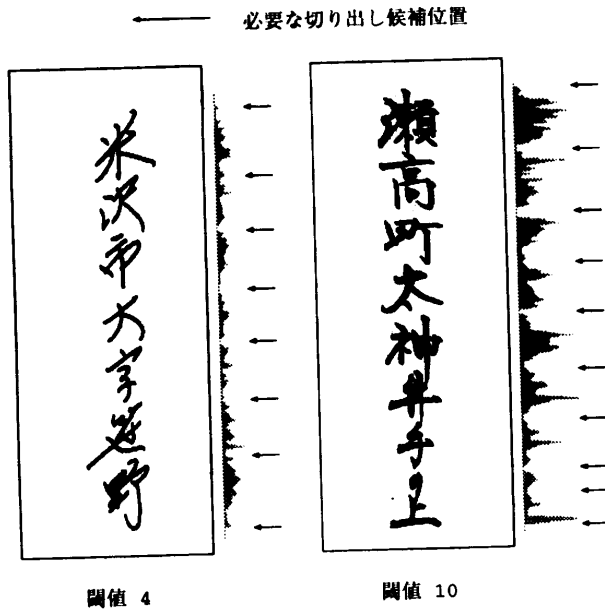 必要な切り出し候補位置
米沢市大字笹野
瀬高町太神井手の上
閾値 4
閾値 10